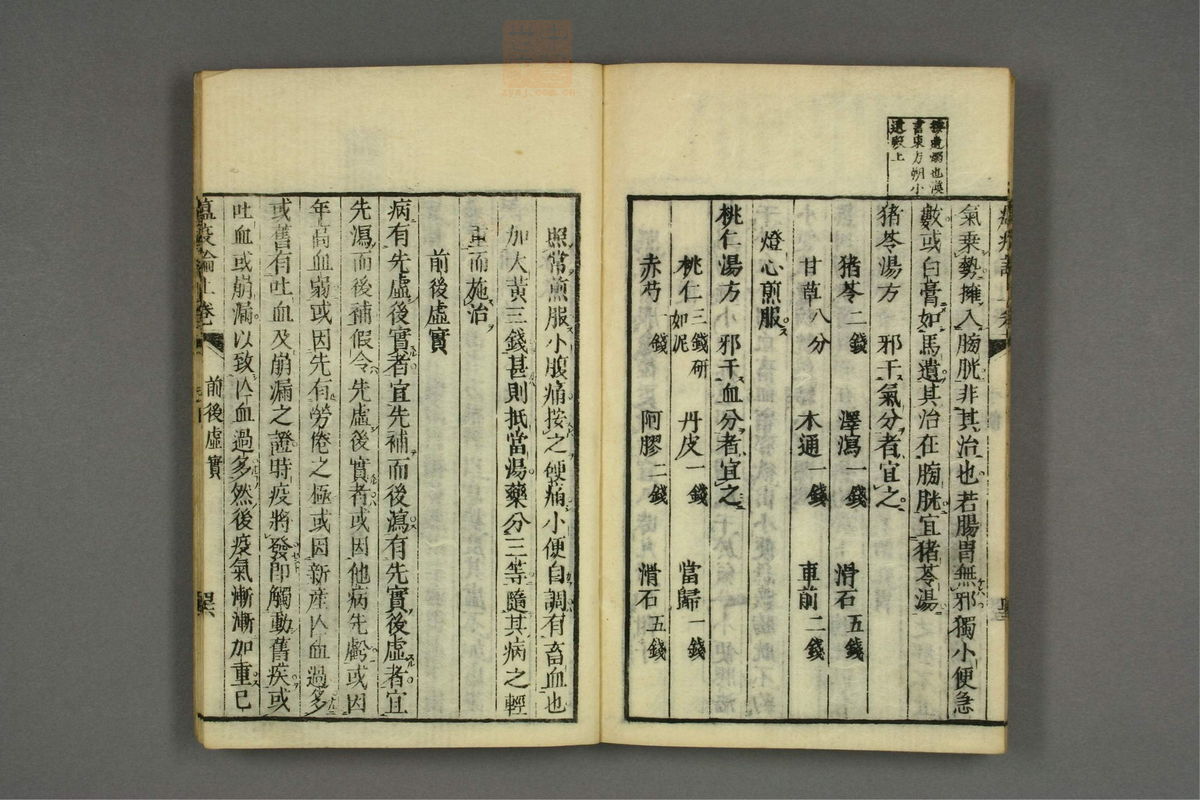 按遺溺也漢
書東方朔小
遺殿上
氣乘勢擁入膀胱非其治也若腸胃無邪獨小便急
數或白膏如馬遺其治在膀胱宜猪苓湯
猪苓湯方 邪干氣分者宜之
猪苓二錢 澤瀉一錢 滑石五錢
甘草八分 木通一錢 車前二錢
燈心煎服
桃仁湯方 邪干血分者宜之
桃仁三錢研如泥 丹皮一錢 當歸一錢
赤芍一錢 阿膠二錢 滑石五錢
照常煎服小腹痛按之硬痛小便自調有畜血也
加大黃三錢甚則抵當湯藥分三等隨其病之輕
重而施治
前後虛實
病有先虛後實者宜先補而後瀉有先實後虛者宜
先瀉而後補假令先虛後實者或因他病先虧或因
年高血弱或因先有勞倦之極或因新產下血過多
或舊有吐血及崩漏之證時疫將發即觸動舊疾或
吐血或崩漏以致下血過多然後疫氣漸漸加重已
瘟疫論上卷 前後虛實